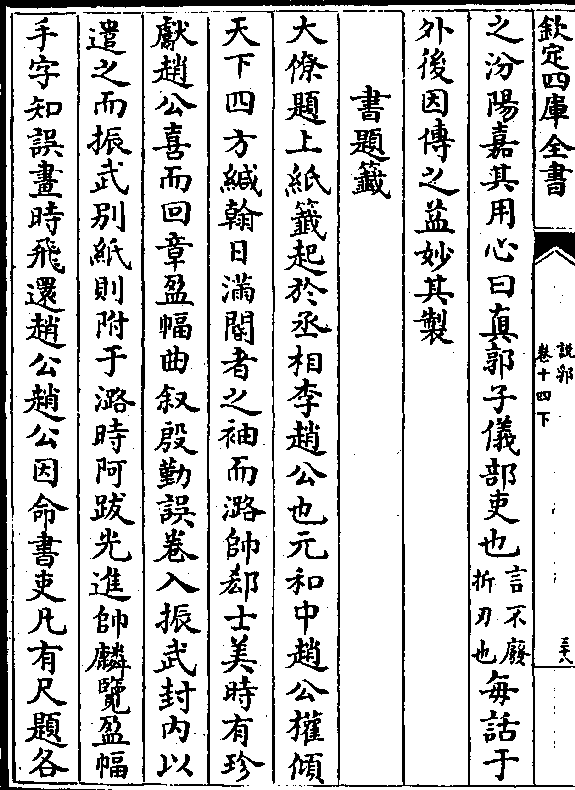 欽定四庫全書
說郛
卷十四下
三十八
之汾陽嘉其用心曰真郭子儀部吏也言不廢折刃也每話于
外後因傳之益妙其製
書題籤
大僚題上紙籤起於丞相李趙公也元和中趙公權傾
天下四方緘翰日滿閽者之袖而潞帥郄士美時有珍
獻趙公喜而回章盈幅曲叙殷勤誤卷入振武封內以
遣之而振武別紙則附于潞時阿跋光進帥麟覽盈幅
手字知誤畫時飛還趙公趙公因命書吏凡有尺題各